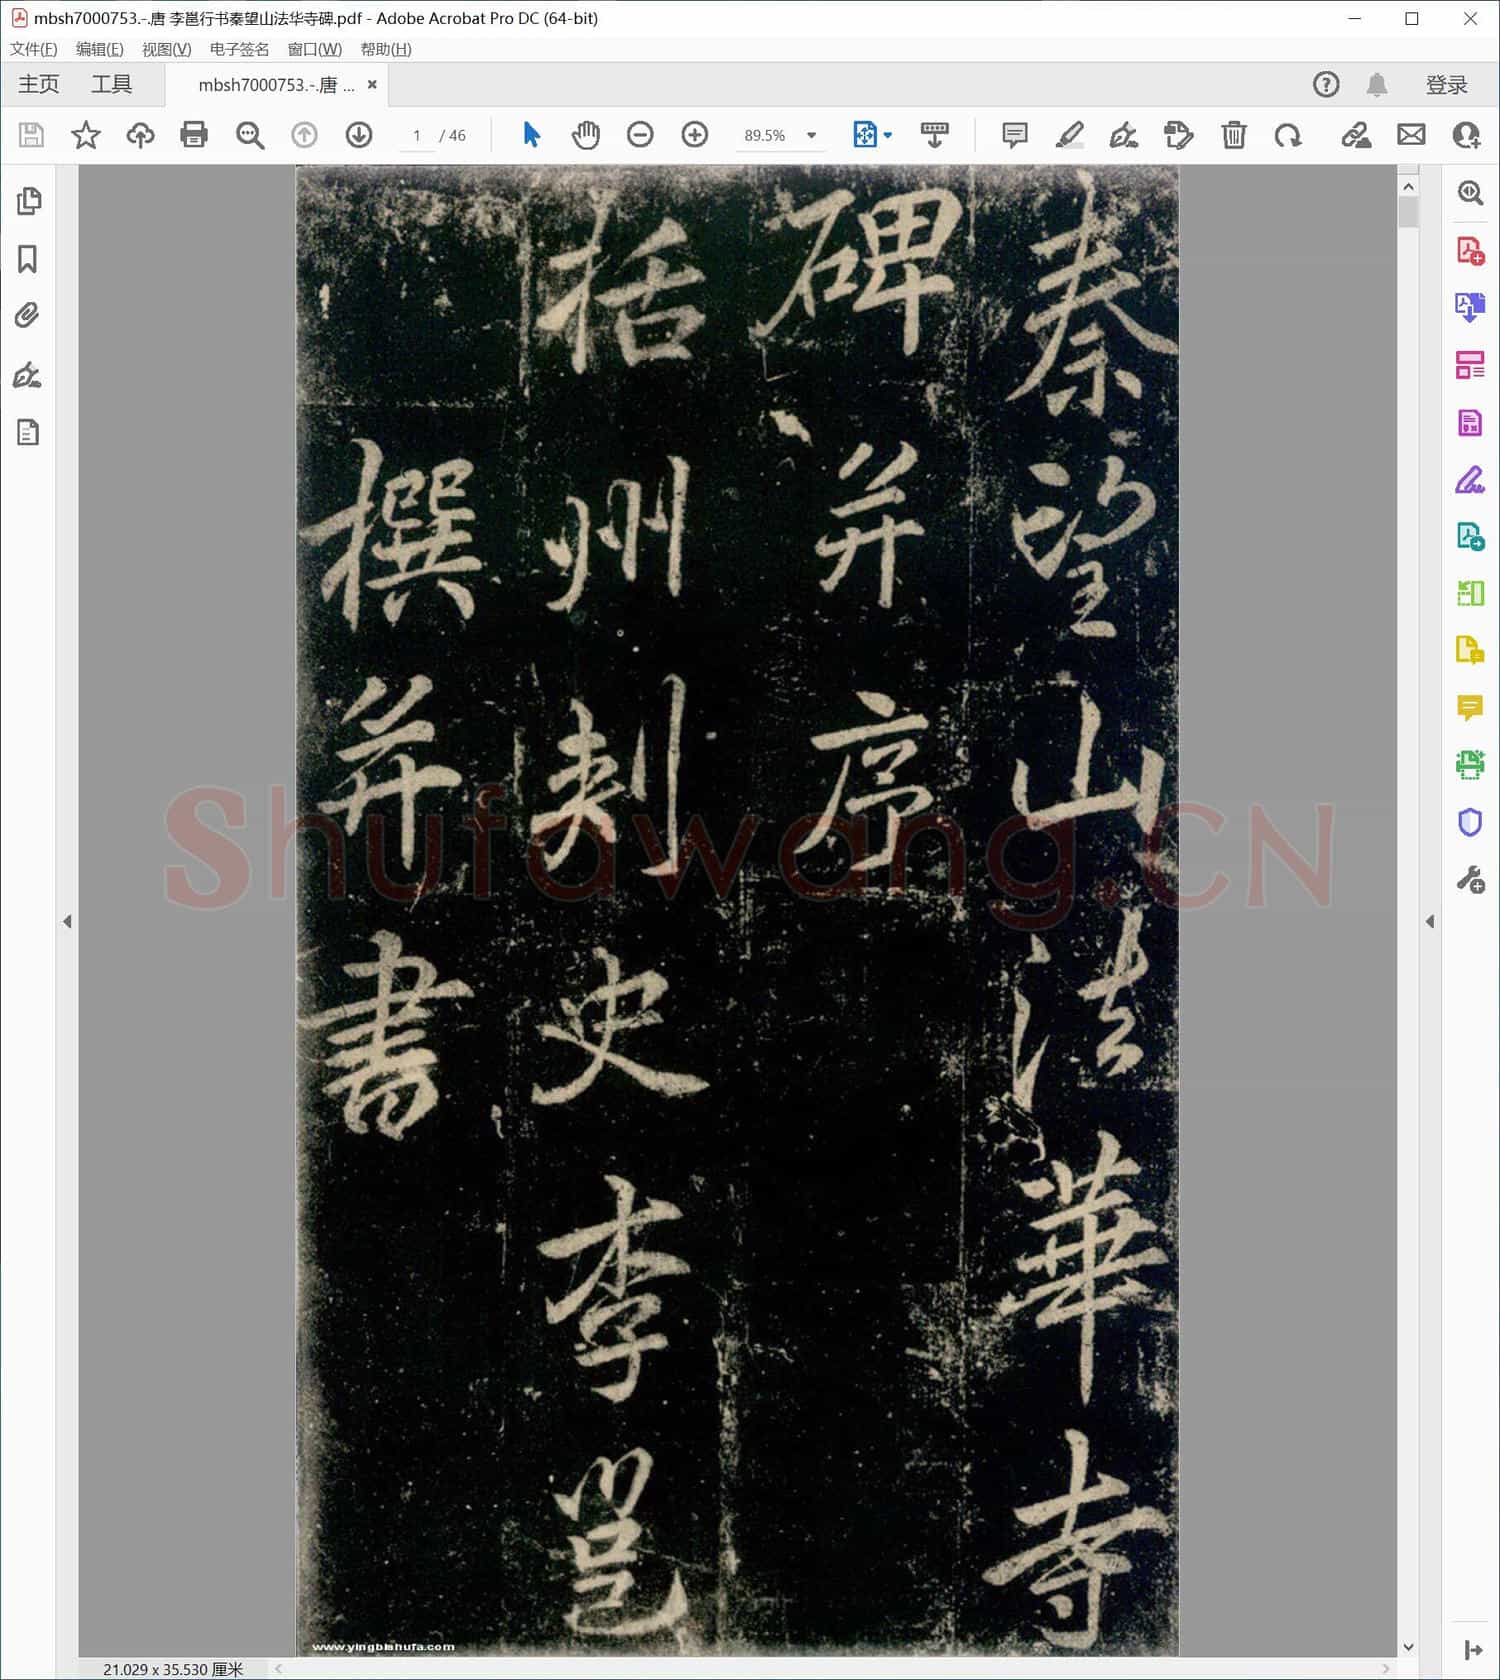 mbsh7000753.-.唐 李邕行书秦望山法华寺碑.pdf - Adobe Acrobat Pro DC (64-bit)
文件(F) 编辑(E) 视图(V) 电子签名 窗口(W) 帮助(H)
主页 工具 mbsh7000753.-.唐 ... × 登录
1 / 46 89.5%
秦望山法華寺
碑并序
括州刺史李邕
撰并書
Shufawang.CN
www.yingbishufa.com
21.029 x 35.530 厘米